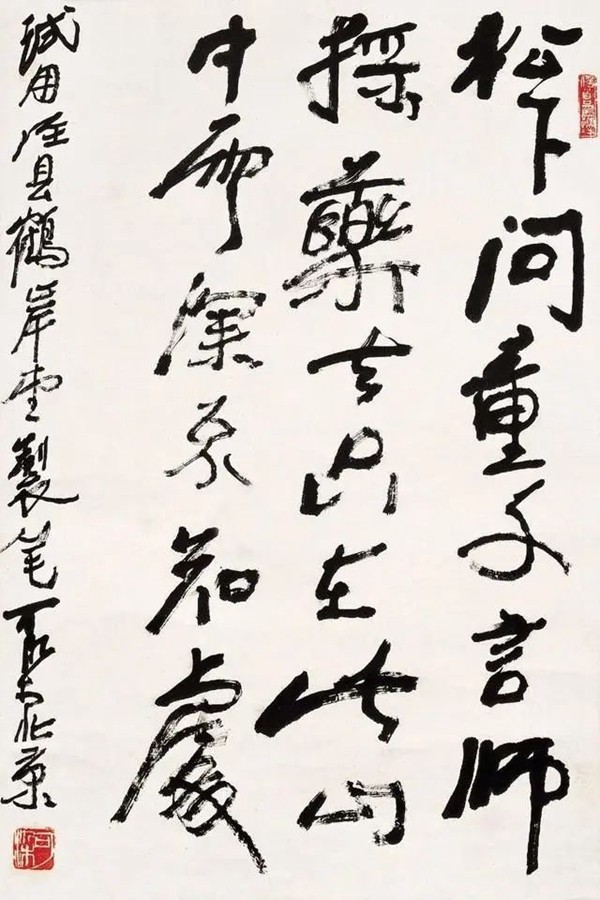 松下问童子言师
採藥去只在此山
中深不知處
試用任县鶴岸堂製笔可染於北京
可染